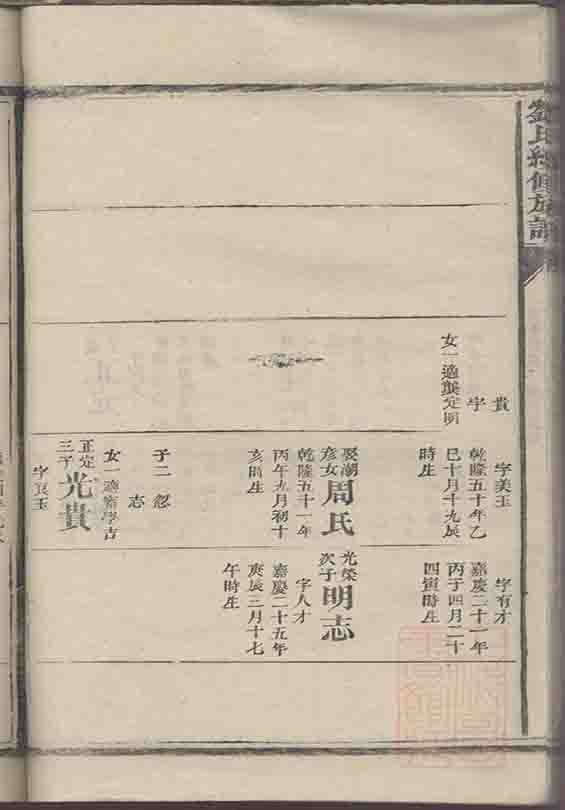 劉氏續修族譜
貴
字
女一適龔定明
字美玉
乾隆五十年乙
巳十月十九辰
時生
娶潮
彥女周氏
乾隆五十一年
丙午九月初十
亥時生
子二 忽
志
女一適甯學吉
正定
三子光貴
字良玉
字有才
嘉慶二十一年
丙子四月二十
四寅時生
光榮
次子明志
字人才
嘉慶二十五年
庚辰三月十七
午時生